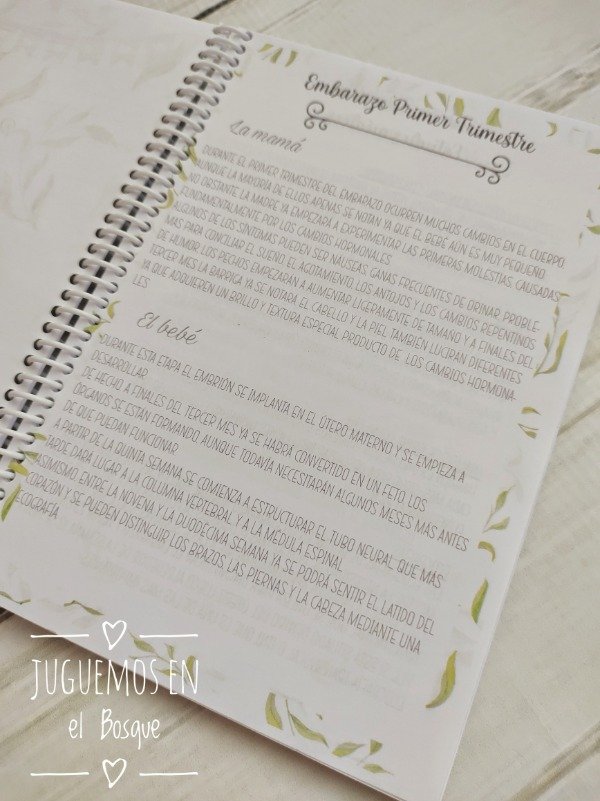 Embarazo Primer Trimestre
La mamá
DURANTE EL PRIMER TRIMESTRE DEL EMBARAZO OCURREN MUCHOS CAMBIOS EN EL CUERPO,
AUNQUE LA MAYORIA DE ELLOS APENAS SE NOTAN YA QUE EL BEBÉ AÚN ES MUY PEQUEÑO.
NO OBSTANTE, LA MADRE YA EMPEZARÁ A EXPERIMENTAR LAS PRIMERAS MOLESTIAS, CAUSADAS
FUNDAMENTALMENTE POR LOS CAMBIOS HORMONALES.
ALGUNOS DE LOS SÍNTOMAS PUEDEN SER NÁUSEAS, GANAS FRECUENTES DE ORINAR, PROBLE-
MAS PARA CONCILIAR EL SUEÑO, EL AGOTAMIENTO, LOS ANTOJOS Y LOS CAMBIOS REPENTINOS
DE HUMOR. LOS PECHOS EMPEZARÁN A AUMENTAR LIGERAMENTE DE TAMAÑO Y A FINALES DEL
TERCER MES LA BARRIGA YA SE NOTARÁ. EL CABELLO Y LA PIEL TAMBIÉN LUCIRÁN DIFERENTES
YA QUE ADQUIEREN UN BRILLO Y TEXTURA ESPECIAL PRODUCTO DE LOS CAMBIOS HORMONA-
LES
El bebé
DURANTE ESTA ETAPA EL EMBRIÓN SE IMPLANTA EN EL ÚTERO MATERNO Y SE EMPIEZA A
DESARROLLAR.
DE HECHO, A FINALES DEL TERCER MES YA SE HABRÁ CONVERTIDO EN UN FETO. LOS
ÓRGANOS SE ESTÁN FORMANDO, AUNQUE TODAVÍA NECESITARÁN ALGUNOS MESES MÁS ANTES
DE QUE PUEDAN FUNCIONAR.
A PARTIR DE LA QUINTA SEMANA SE COMIENZA A ESTRUCTURAR EL TUBO NEURAL, QUE MÁS
TARDE DARÁ LUGAR A LA COLUMNA VERTEBRAL Y A LA MÉDULA ESPINAL.
ASIMISMO, ENTRE LA NOVENA Y LA DUODÉCIMA SEMANA YA SE PODRÁ SENTIR EL LATIDO DEL
CORAZÓN Y SE PUEDEN DISTINGUIR LOS BRAZOS, LAS PIERNAS Y LA CABEZA MEDIANTE UNA
ECOGRAFÍA.
JUGUEMOS EN
el Bosque